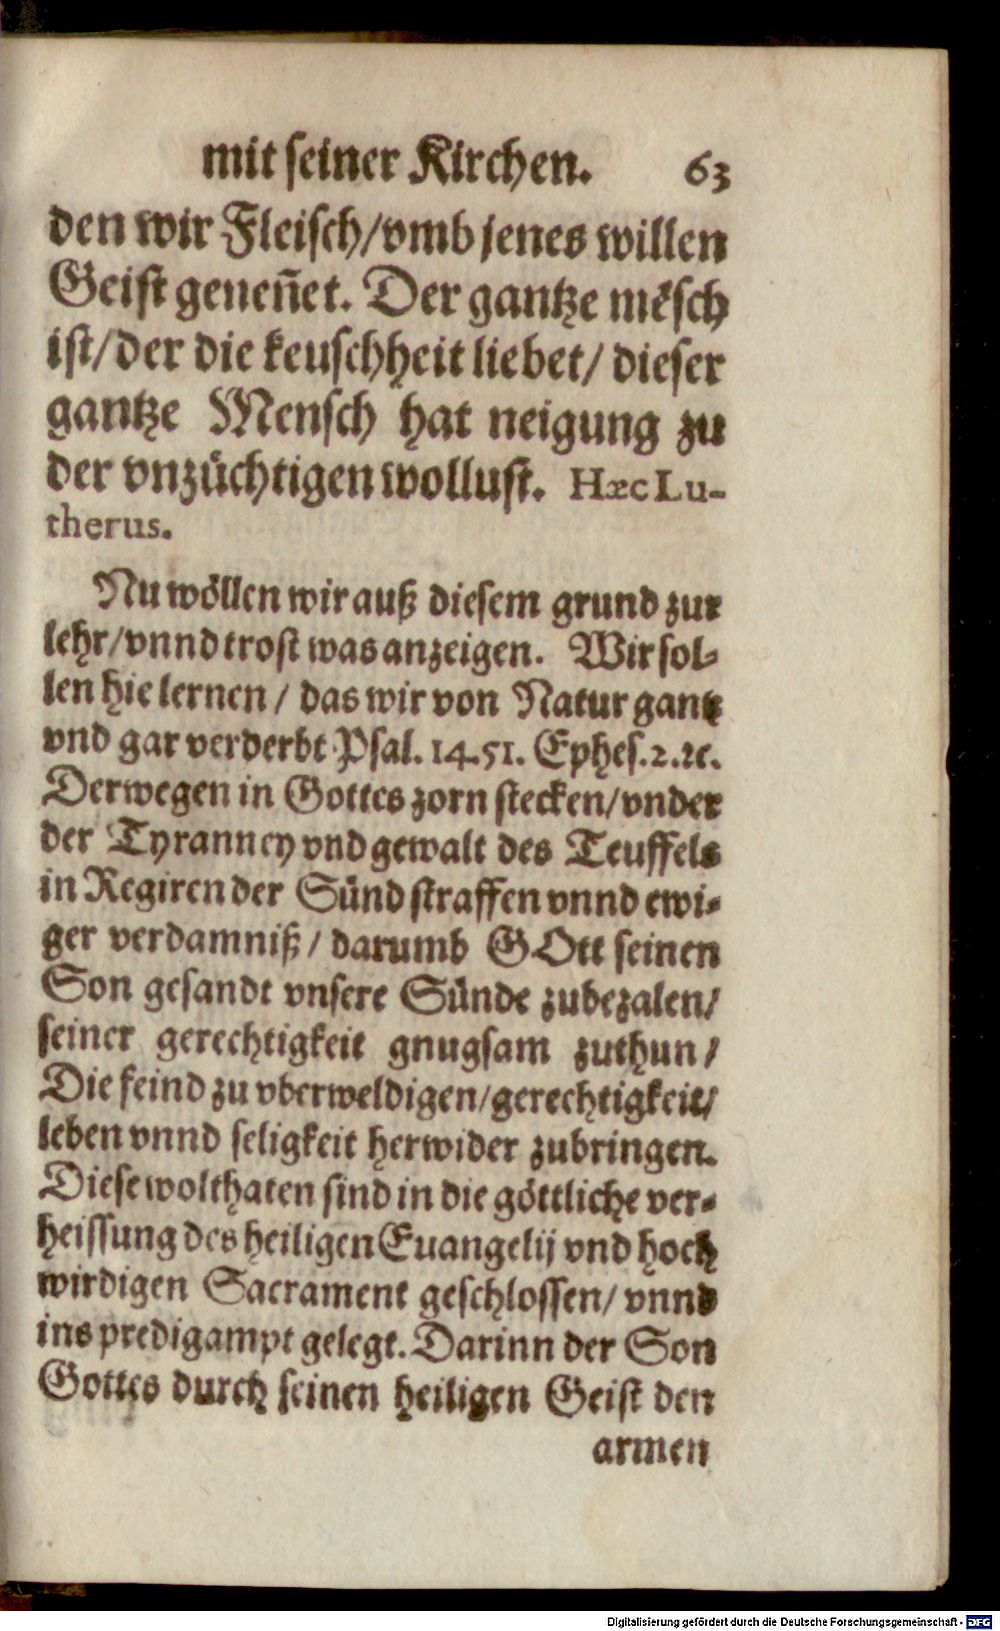 mit seiner Kirchen. 63
den wir Fleisch/vmb jenes willen
Geist geneñet. Der gantze mẽsch
ist/der die keuschheit liebet/ dieser
gantze Mensch hat neigung zu
der vnzüchtigen wollust. Hæc Lu-
therus.
Nu wöllen wir auß diesem grund zur
lehr/vnnd trost was anzeigen. Wir sol-
len hie lernen / das wir von Natur gantz
vnd gar verderbt Psal. 14. 51. Ephes. 2. ꝛc.
Derwegen in Gottes zorn stecken/vnder
der Tyranney vnd gewalt des Teuffels
in Regiren der Sünd straffen vnnd ewi-
ger verdamniß / darumb GOtt seinen
Son gesandt vnsere Sünde zubezalen/
seiner gerechtigkeit gnugsam zuthun /
Die feind zu vberweldigen/gerechtigkeit/
leben vnnd seligkeit herwider zubringen.
Diese wolthaten sind in die göttliche ver-
heissung des heiligen Euangelij vnd hoch
wirdigen Sacrament geschlossen/ vnnd
ins predigampt gelegt. Darinn der Son
Gottes durch seinen heiligen Geist den
armen
Digitalisierung gefördert durch die Deutsche Forschungsgemeinschaft - DFG